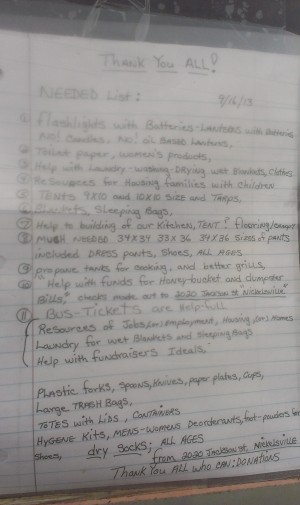 Thank You ALL!
NEEDED List: 9/16/13
① Flashlights with Batteries - Lanterns with Batteries
NO! Candles. NO! oil Based Lanterns.
② Toilet paper, women's products,
③ Help with Laundry - washing - Drying wet Blankets, Clothes
④ Resources for Housing families with children
⑤ TENTS 9x10 and 10x10 Size and Tarps,
⑥ Blankets, Sleeping Bags,
⑦ Help to building of our Kitchen, TENT? flooring
⑧ MUCH NEEDED 34x34 33x36 34x36 Sizes of pants
included DRESS pants, Shoes, ALL AGES
⑨ propane tanks for cooking, and better grills,
⑩ Help with funds for Honey-bucket and dumpster
Bills, checks made out to 2020 Jackson st "Nickelsville"
⑪ BUS-TICKETS are Help-full
Resources of Jobs, employment, Housing, Homes
Laundry for wet Blankets and Sleeping Bags
Help with fundraisers Ideals
PLASTIC forks, Spoons, Knives, paper plates, Cups,
Large TRASH Bags,
TOTES with Lids, CONTAINORS
HYGENE Kits, MENS-WOMENS Deorderants, foot-powders for
Shoes, dry Socks; ALL AGES
from 2020 Jackson st. Nickelsville
Thank You ALL who CAN: DONATIONS